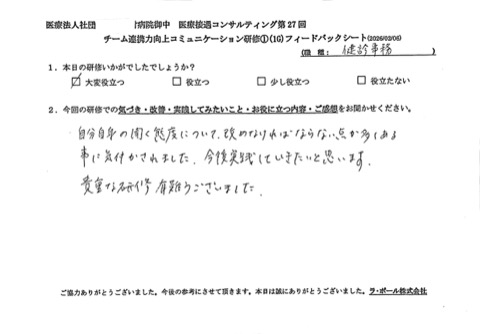 医療法人社団 病院御中 医療接遇コンサルティング第27回
チーム連携力向上コミュニケーション研修①(1G)フィードバックシート(2026/02/06)
(職種: 健診事務 )
1.本日の研修いかがでしたでしょうか?
☑ 大変役立つ □ 役立つ □ 少し役立つ □ 役立たない
2.今回の研修での気づき・改善・実践してみたいこと・お役に立つ内容・ご感想をお聞かせください。
自分自身の聞く態度について、改めなければならない点が多くある
事に気付かされました。今後実践していきたいと思います。
貴重な研修 有難うございました。
ご協力ありがとうございました。今後の参考にさせて頂きます。本日は誠にありがとうございました。ラ・ポール株式会社